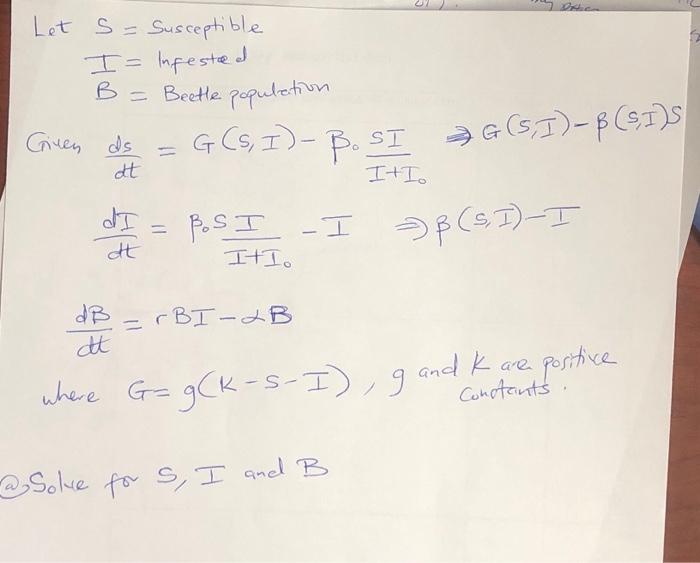 Let S = Susceptible
I = Infested
B = Beetle population
Given ds/dt = G(S, I) - β₀ SI/(I+I₀) ⇒ G(S,I) - β(S,I)S
dI/dt = β₀S I/(I+I₀) - I ⇒ β(S,I) - I
dB/dt = rBI - αB
where G = g(K-S-I), g and K are positive
constants.
@ Solve for S, I and B